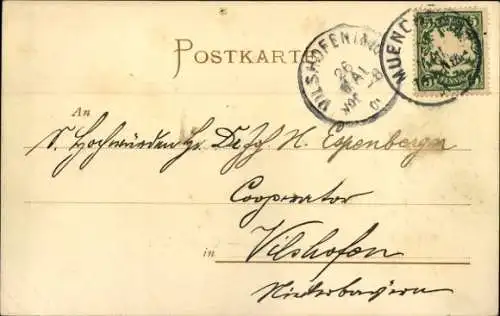 POSTKARTE
VILSHOFEN
26
MAI
MUENCH
5
5
An
S. Hochwürden H. H. Espenberger
Cooperator
in Vilshofen
Niederbayern